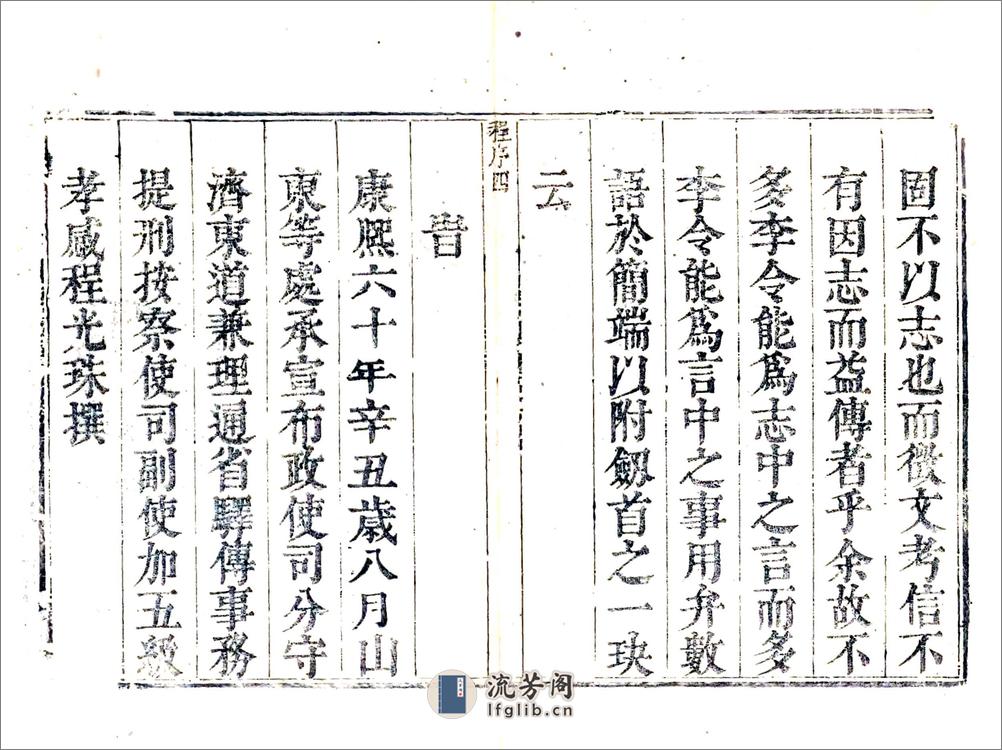 固不以志也而徵文考信不
有因志而益傳者乎余故不
多李令能爲志中之言而多
李令能爲言中之事用弁數
語於簡端以附劔首之一玦
云
程序四
旹
康熙六十年辛丑歲八月山
東等處承宣布政使司分守
濟東道兼理通省驛傳事務
提刑按察使司副使加五級
孝感程光珠撰
流芳阁
lfglib.cn